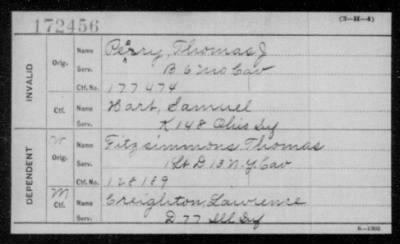 172456
(3-H-4)
INVALID
Orig. Name Perry, Thomas J
Serv. B 6 Mo Cav
Ctf. No. 177474
Ctf. Name Hart, Samuel
Serv. K 148 Ohio Inf
DEPENDENT
W Orig. Name Fitzsimmons, Thomas
Serv. 1 Lt D 13 N.Y. Cav
Ctf. No. 128189
M Ctf. Name Creighton, Lawrence
Serv. D 77 Ill Inf